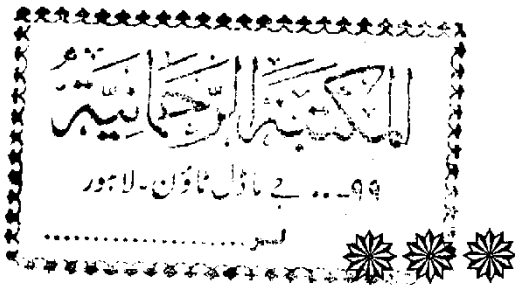 المکتبۃ الرحمانیۃ
۹۹۔۔۔ جے ماڈل ٹاؤن۔ لاہور
نمبر ....................